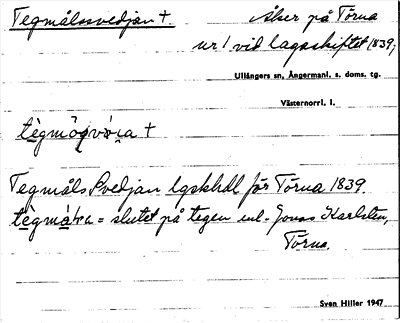 Tegmålssvedjan +. Åker på Törna
nr 1 vid lagaskiftet 1839,
Ullångers sn, Ångermanl. s. doms. tg.
Västernorrl. l.
Tegmåls Svedjan lgskhdl för Törna 1839.
= slutet på tegen enl. Jonas Karlsten,
Törna.
Sven Hiller 1947